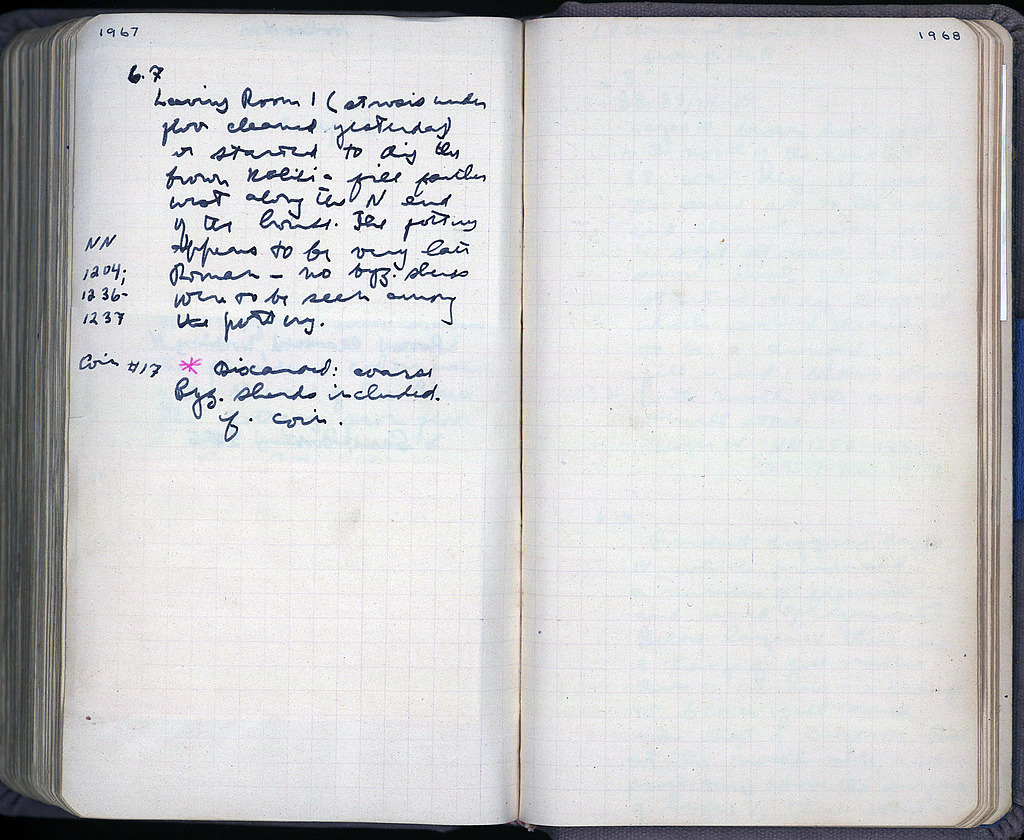 1967
6.7
Leaving Room 1 (strosis under
floor cleaned yesterday)
we started to dig the
brown fill further
west along the N end
of the house. The pottery
NN appears to be very late
1204; Roman – no byz. sherds
1236- were to be seen among
1237 the pottery.
Coin #17 * Discarded: coarse
Byz. sherds included.
cf. coin.
1968